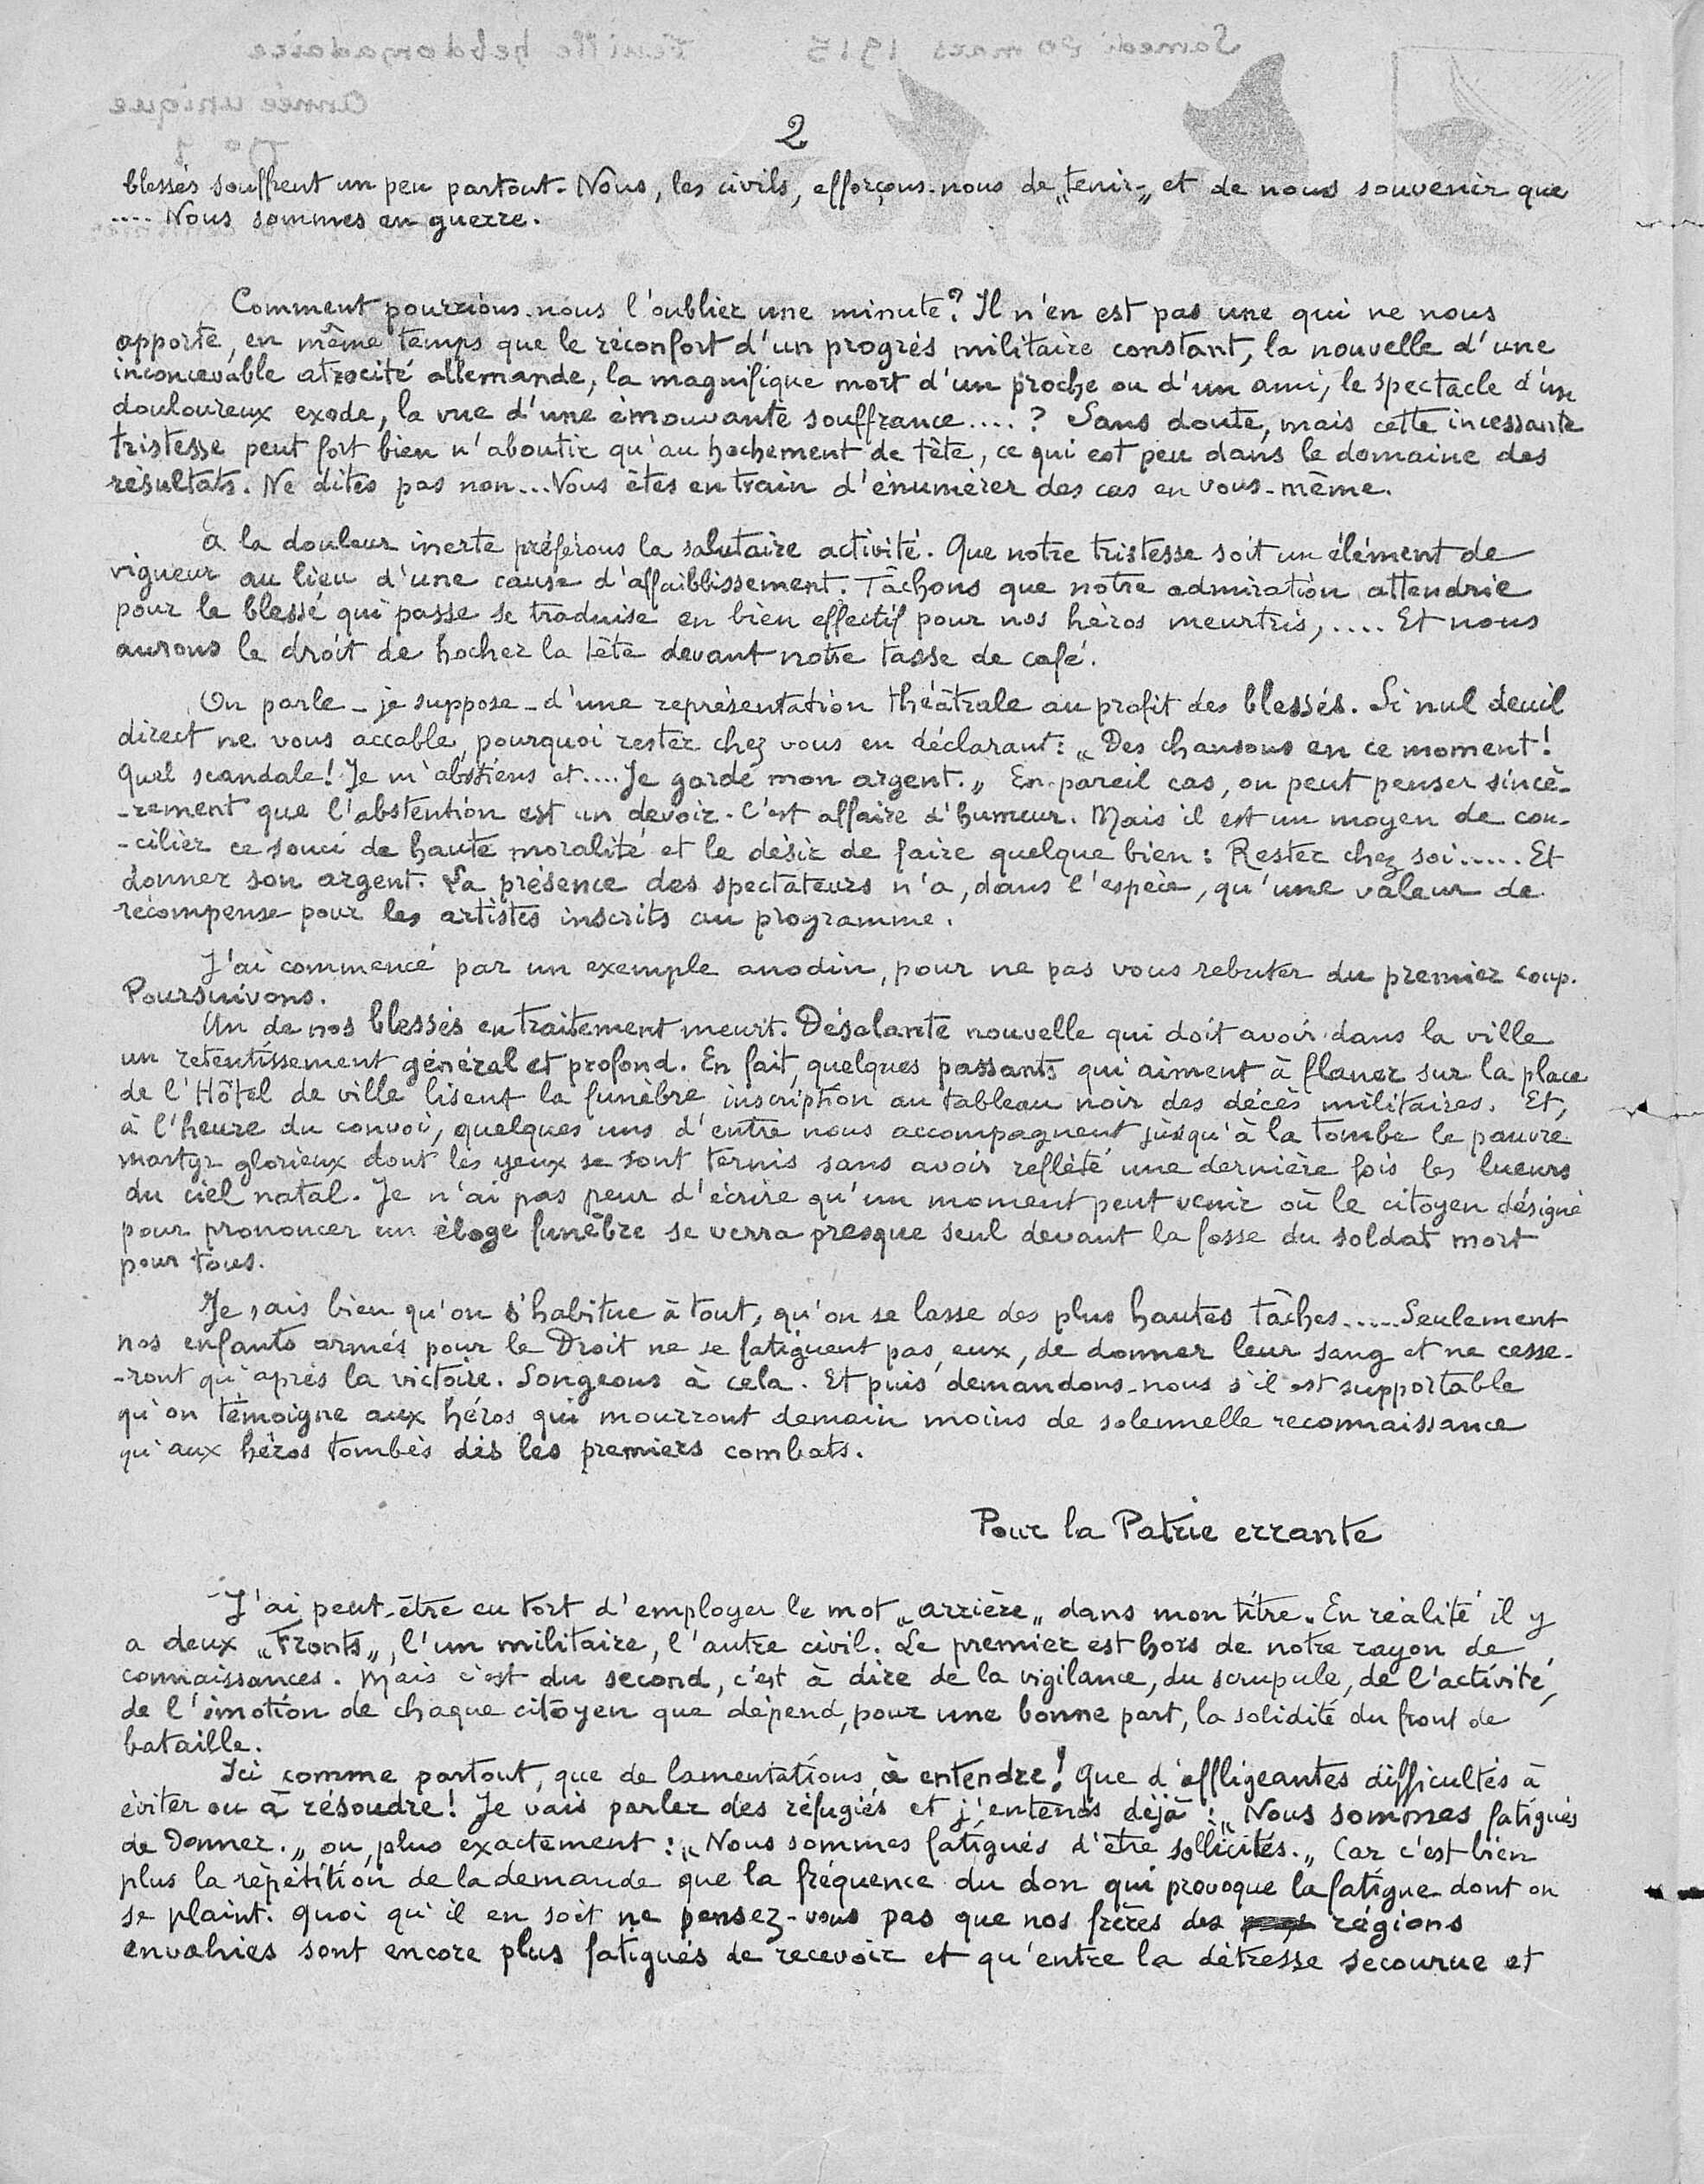 2
blessés souffrent un peu partout. Nous, les civils, efforçons-nous de „tenir„ et de nous souvenir que
.... Nous sommes en guerre.
Comment pourrions-nous l'oublier une minute? Il n'en est pas une qui ne nous
apporte, en même temps que le réconfort d'un progrès militaire constant, la nouvelle d'une
inconcevable atrocité allemande, la magnifique mort d'un proche ou d'un ami, le spectacle d'un
douloureux exode, la vue d'une émouvante souffrance....? Sans doute, mais cette incessante
tristesse peut fort bien n'aboutir qu'au hochement de tête, ce qui est peu dans le domaine des
résultats. Ne dites pas non... Vous êtes en train d'énumérer des cas en vous-même.
A la douleur inerte préférons la salutaire activité. Que notre tristesse soit un élément de
vigueur au lieu d'une cause d'affaiblissement. Tâchons que notre admiration attendrie
pour le blessé qui passe se traduise en bien effectif pour nos héros meurtris,.... Et nous
aurons le droit de hocher la tête devant notre tasse de café.
On parle - je suppose - d'une représentation théâtrale au profit des blessés. Si nul deuil
direct ne vous accable, pourquoi rester chez vous en déclarant: „Des chansons en ce moment!
Quel scandale! Je m'abstiens et.... Je garde mon argent.„ En pareil cas, on peut penser sincè-
-rement que l'abstention est un devoir. C'est affaire d'humeur. Mais il est un moyen de con-
-cilier ce souci de haute moralité et le désir de faire quelque bien: Rester chez soi..... Et
donner son argent. La présence des spectateurs n'a, dans l'espèce, qu'une valeur de
récompense pour les artistes inscrits au programme.
J'ai commencé par un exemple anodin, pour ne pas vous rebuter du premier coup.
Poursuivons.
Un de nos blessés en traitement meurt. Désolante nouvelle qui doit avoir dans la ville
un retentissement général et profond. En fait, quelques passants qui aiment à flaner sur la place
de l'Hôtel de ville lisent la funèbre inscription au tableau noir des décès militaires. Et,
à l'heure du convoi, quelques uns d'entre nous accompagnent jusqu'à la tombe le pauvre
martyr glorieux dont les yeux se sont ternis sans avoir reflété une dernière fois les lueurs
du ciel natal. Je n'ai pas peur d'écrire qu'un moment peut venir où le citoyen désigné
pour prononcer un éloge funèbre se verra presque seul devant la fosse du soldat mort
pour tous.
Je sais bien qu'on s'habitue à tout, qu'on se lasse des plus hautes tâches..... Seulement
nos enfants armés pour le Droit ne se fatiguent pas, eux, de donner leur sang et ne cesse-
-ront qu'après la victoire. Songeons à cela. Et puis demandons-nous s'il est supportable
qu'on témoigne aux héros qui mourront demain moins de solennelle reconnaissance
qu'aux héros tombés dès les premiers combats.
Pour la Patrie errante
J'ai peut-être eu tort d'employer le mot „arrière„ dans mon titre. En réalité il y
a deux „Fronts„, l'un militaire, l'autre civil. Le premier est hors de notre rayon de
connaissances. Mais c'est du second, c'est à dire de la vigilance, du scrupule, de l'activité,
de l'émotion de chaque citoyen que dépend, pour une bonne part, la solidité du front de
bataille.
Ici comme partout, que de lamentations à entendre! Que d'affligeantes difficultés à
éviter ou à résoudre! Je vais parler des réfugiés et j'entends déjà: „Nous sommes fatigués
de Donner.„ ou, plus exactement: „Nous sommes fatigués d'être sollicités.„ Car c'est bien
plus la répétition de la demande que la fréquence du don qui provoque la fatigue dont on
se plaint. Quoi qu'il en soit ne pensez-vous pas que nos frères des régions
envahies sont encore plus fatigués de recevoir et qu'entre la détresse secourue et